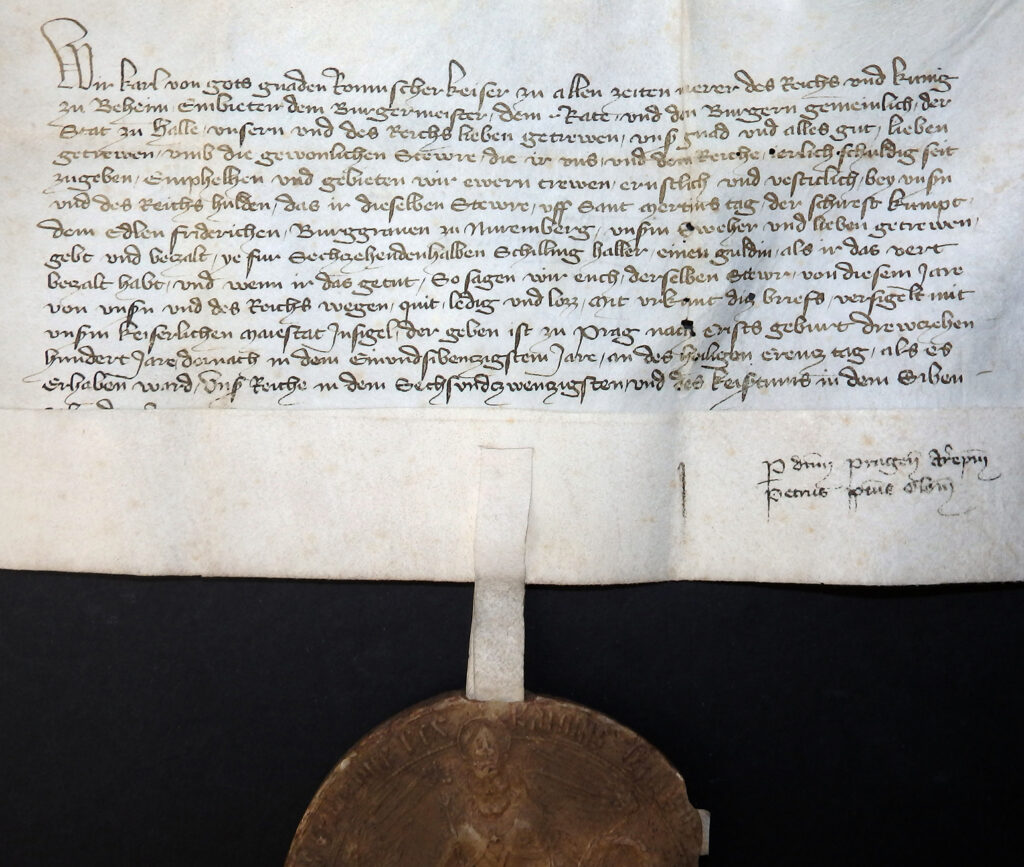 Wir karl von gots gnaden Romischer keiser zu allen zeiten merer des Reichs vnd kunig
zu Beheim Embieten dem Burgermeister, dem Rate, vnd den Burgern gemeinlich, der
Stat zu Halle, vnsern vnd des Reichs lieben getrewen, vnsr gnad vnd alles gut, lieben
getrewen, vmb die gewonlichen Stewre, die ir vns, vnd dem Reiche, erlich schuldig seit
zugeben, Emphelhen vnd gebieten wir ewern trewen, ernstlich vnd vesticlich, bey vnsn
vnd des Reichs hulden, das ir dieselben Stewre, vff Sant mertins tag, der schirest kumpt,
dem Edlen friderichen, Burggrauen zu Nuremberg, vnsm Sweher vnd lieben getrewen,
gebt vnd bezalt, ye fur Sechzehendenhalben Schilling haller, einen guldin, als ir das vert
bezalt habt, vnd wenn ir das getut, So sagen wir euch, derselben Stewr, von diesem Jare
von vnsn vnd des Reichs wegen, quit, ledig vnd lozz, Mit vrkunt dis briefs, versigelt mit
vnsm keiserlichen maiestat Insigel, der geben ist zu Prag nach crists geburt drewczehen
hundert Jare dornach in dem Einvndsibenzigstem Jare, an des heiligen creucz tag, als es
Erhaben ward, Vnsr Reiche in dem Sechsvndzwenzigsten, vnd des keisertums in dem Siben
P dnm pragen Arepm
Petrus